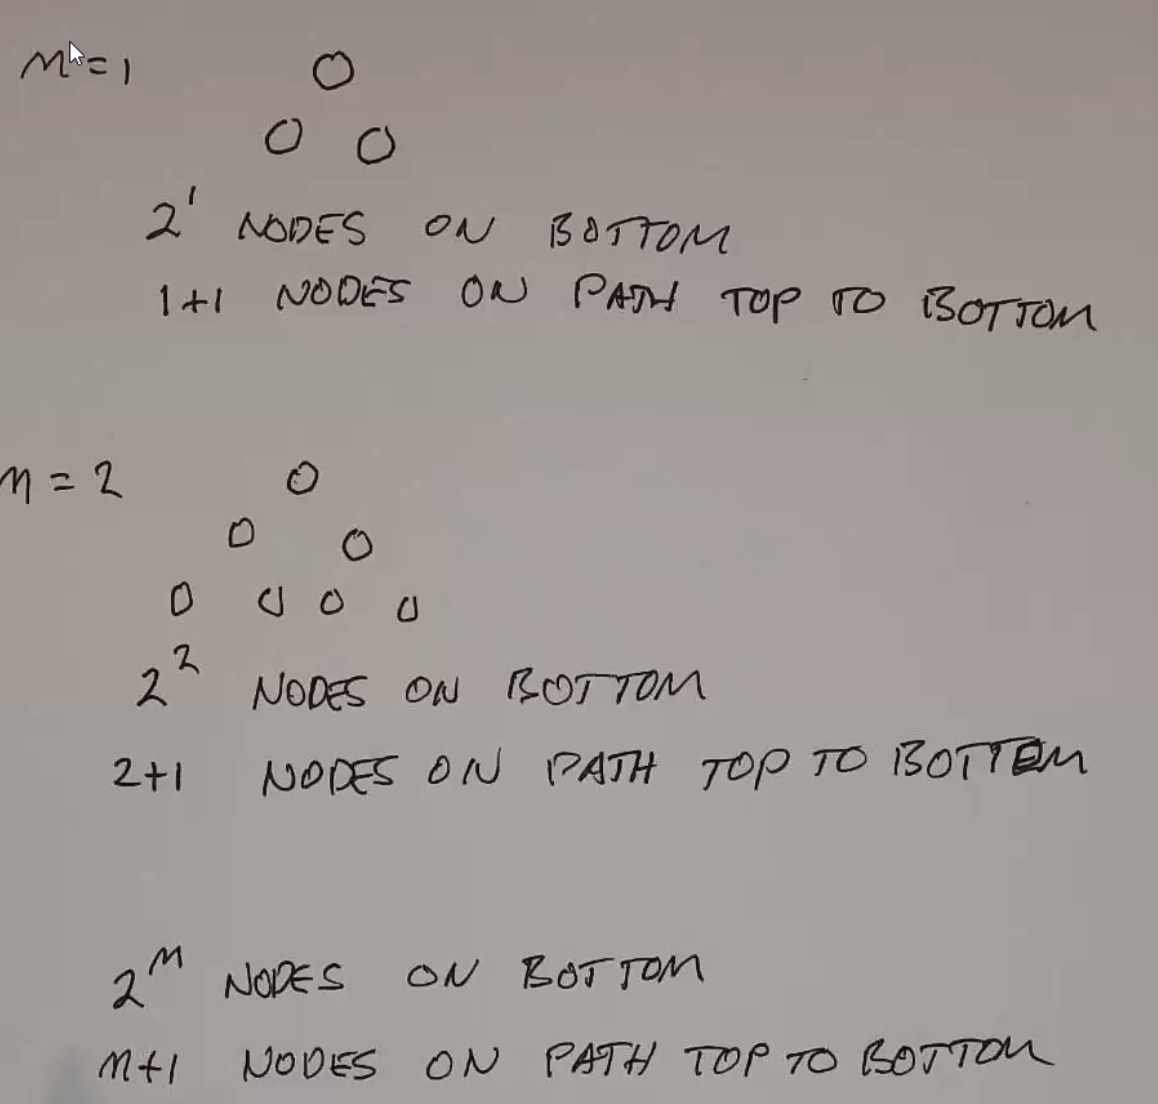 M=1
2¹ NODES ON BOTTOM
1+1 NODES ON PATH TOP TO BOTTOM
M=2
2² NODES ON BOTTOM
2+1 NODES ON PATH TOP TO BOTTOM
2ᴹ NODES ON BOTTOM
M+1 NODES ON PATH TOP TO BOTTOM